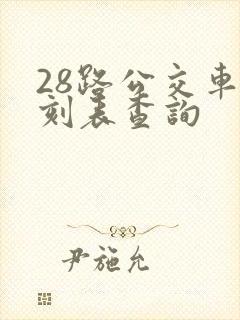 28路公交車
刻表查詢
尹施允